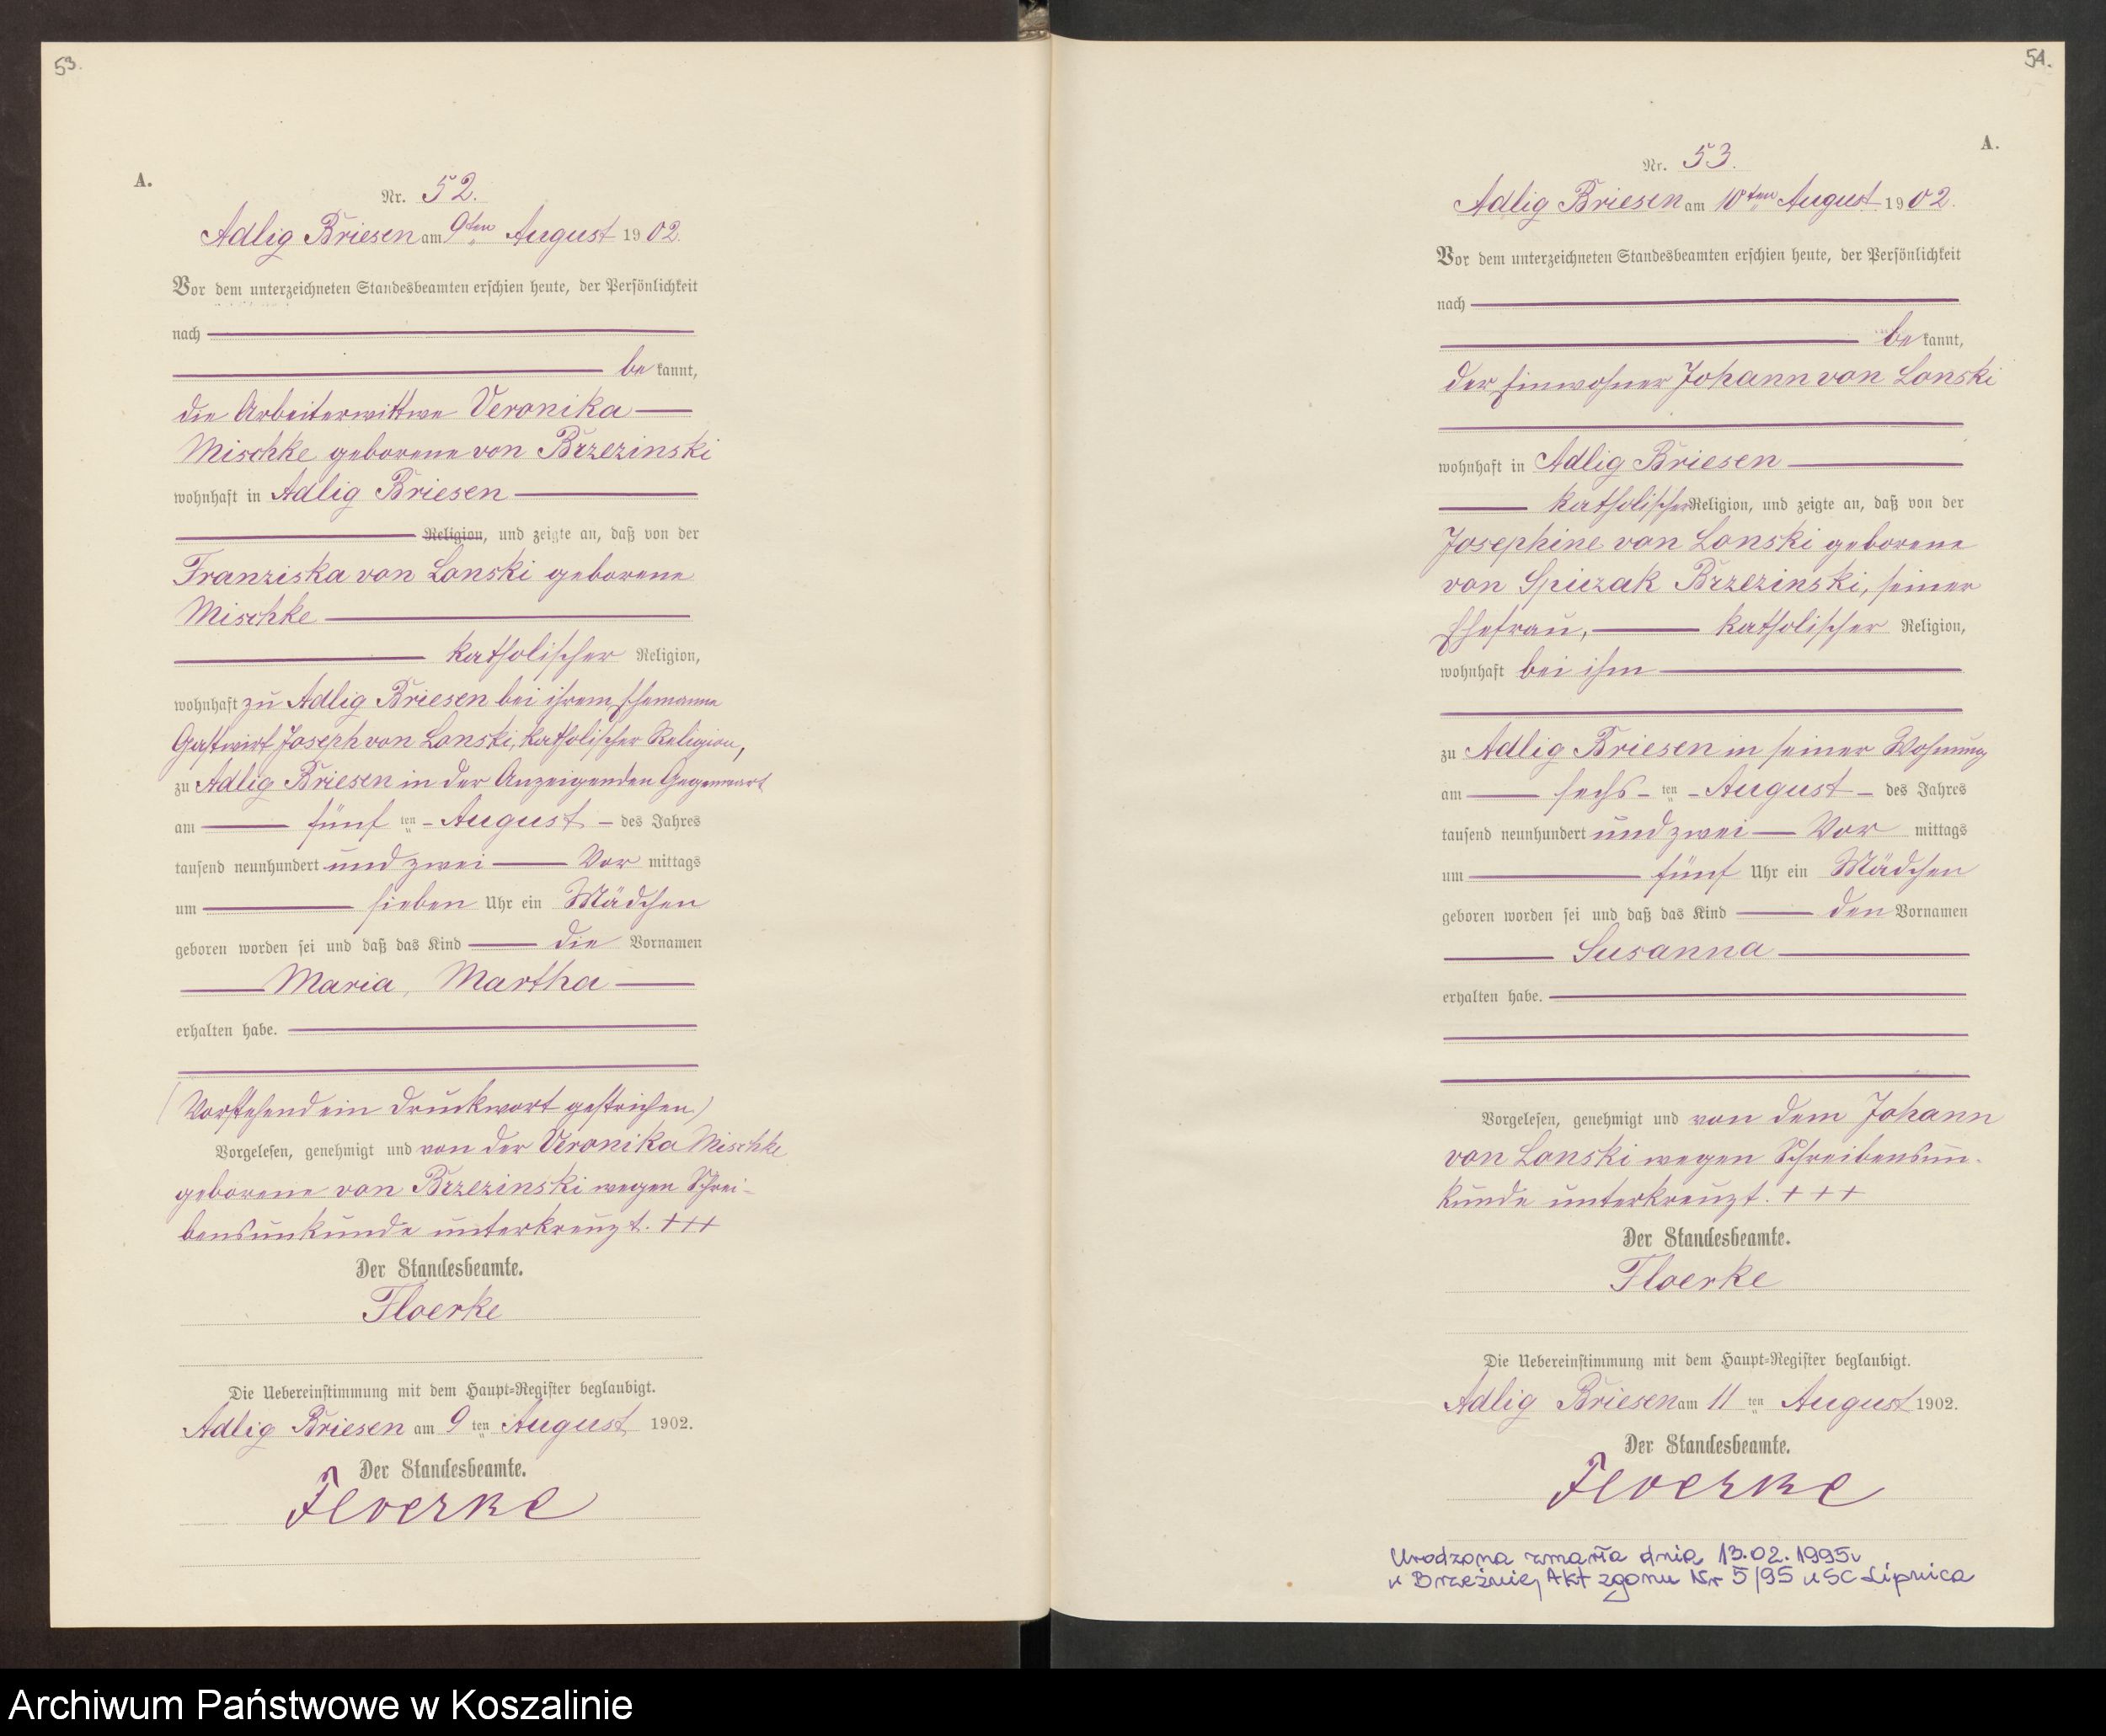 53.
A.
Nr. 52.
Adlig Briesen am 9ten August 1902.
Vor dem unterzeichneten Standesbeamten erschien heute, der Persönlichkeit
nach
be kannt,
die Arbeiterwittwe Veronika
Mischke geborene von Brzezinski
wohnhaft in Adlig Briesen
Religion, und zeigte an, daß von der
Franziska von Lonski geborene
Mischke
katholischer Religion,
wohnhaft zu Adlig Briesen bei ihrem Ehemanne
Gastwirt Joseph von Lonski, katholischer Religion,
zu Adlig Briesen in der Anzeigenden Gegenwart
am fünf ten August des Jahres
tausend neunhundert und zwei Vor mittags
um sieben Uhr ein Mädchen
geboren worden sei und daß das Kind die Vornamen
Maria, Martha
erhalten habe.
(Vorstehend ein Druckwort gestrichen)
Vorgelesen, genehmigt und von der Veronika Mischke
geborene von Brzezinski wegen Schrei-
bensunkunde unterkreuzt. +++
Der Standesbeamte.
Floerke
Die Uebereinstimmung mit dem Haupt-Register beglaubigt.
Adlig Briesen am 9 ten August 1902.
Der Standesbeamte.
Floerke
54.
A.
Nr. 53.
Adlig Briesen am 10ten August 1902.
Vor dem unterzeichneten Standesbeamten erschien heute, der Persönlichkeit
nach
be kannt,
der Einwohner Johann von Lonski
wohnhaft in Adlig Briesen
katholischer Religion, und zeigte an, daß von der
Josephine von Lonski geborene
von Spiczak Brzezinski, seiner
Ehefrau, katholischer Religion,
wohnhaft bei ihm
zu Adlig Briesen in seiner Wohnung
am sechs ten August des Jahres
tausend neunhundert und zwei Vor mittags
um fünf Uhr ein Mädchen
geboren worden sei und daß das Kind den Vornamen
Susanna
erhalten habe.
Vorgelesen, genehmigt und von dem Johann
von Lonski wegen Schreibensun-
kunde unterkreuzt. +++
Der Standesbeamte.
Floerke
Die Uebereinstimmung mit dem Haupt-Register beglaubigt.
Adlig Briesen am 11 ten August 1902.
Der Standesbeamte.
Floerke
Urodzona zmarła dnia 13.02.1995r
w Brzeźnie, Akt zgonu Nr 5/95 USC Lipnica
Archiwum Państwowe w Koszalinie